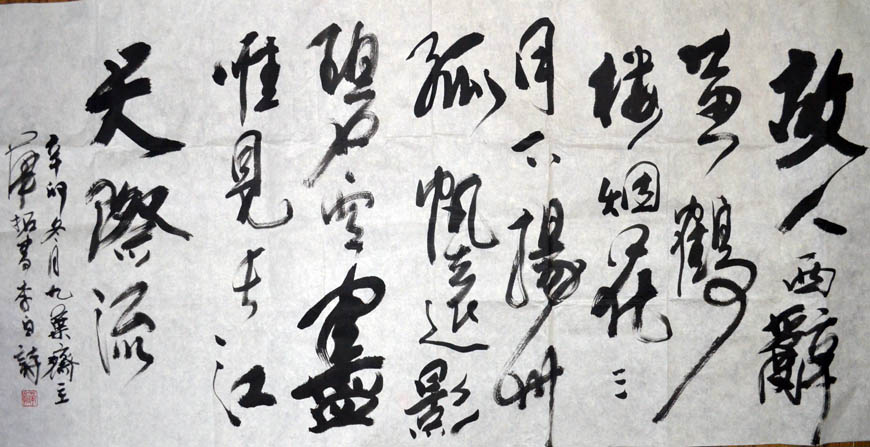 故人西辭
黄鶴
楼烟花三
月下揚州
孤帆遠影
碧空盡
惟見長江
天際流
辛卯冬月九葉齋主
書李白詩